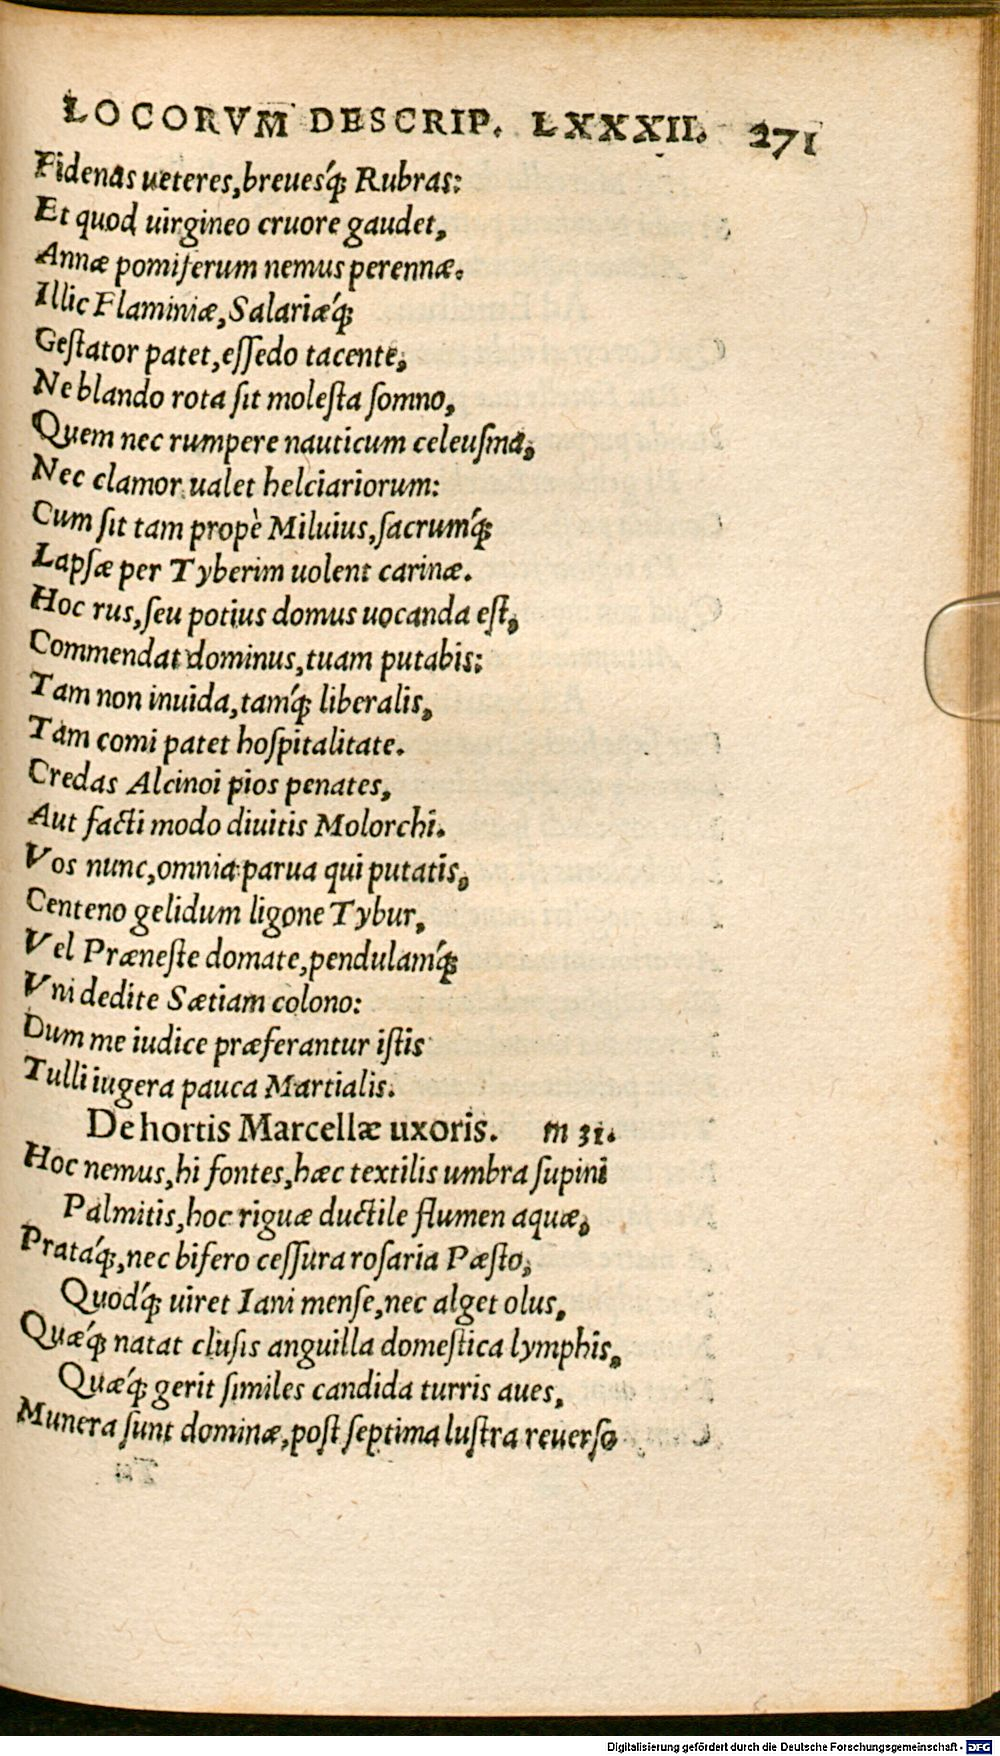 LOCORVM DESCRIP. LXXXII. 271
Fidenas ueteres, breuesq́; Rubras:
Et quod uirgineo cruore gaudet,
Annæ pomiferum nemus perennæ.
Illic Flaminiæ, Salariæq́;
Geſtator patet, eſſedo tacente,
Ne blando rota ſit moleſta ſomno,
Quem nec rumpere nauticum celeuſma,
Nec clamor ualet helciariorum:
Cum ſit tam propè Miluius, ſacrumq́;
Lapſæ per Tyberim uolent carinæ.
Hoc rus, ſeu potius domus uocanda eſt,
Commendat dominus, tuam putabis:
Tam non inuida, tamq́; liberalis,
Tam comi patet hoſpitalitate.
Credas Alcinoi pios penates,
Aut facti modo diuitis Molorchi.
Vos nunc, omnia parua qui putatis,
Centeno gelidum ligone Tybur,
Vel Præneſte domate, pendulamq́;
Vni dedite Sætiam colono:
Dum me iudice præferantur iſtis
Tulli iugera pauca Martialis.
De hortis Marcellæ uxoris. m 31.
Hoc nemus, hi fontes, hæc textilis umbra ſupini
Palmitis, hoc riguæ ductile flumen aquæ,
Prataq́;, nec bifero ceſſura roſaria Pæſto,
Quodq́; uiret Iani menſe, nec alget olus,
Quæq́; natat cluſis anguilla domeſtica lymphis,
Quæq́; gerit ſimiles candida turris aues,
Munera ſunt dominæ, poſt ſeptima luſtra reuerſo
Digitalisierung gefördert durch die Deutsche Forschungsgemeinschaft - DFG